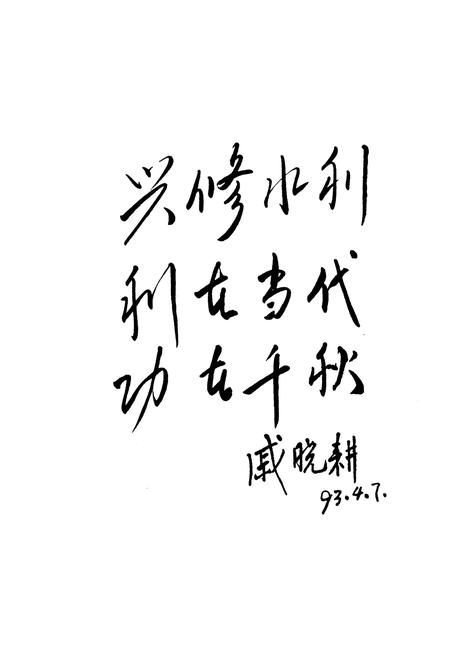 兴修水利
利在当代
功在千秋
戚晓耕
93.4.7.